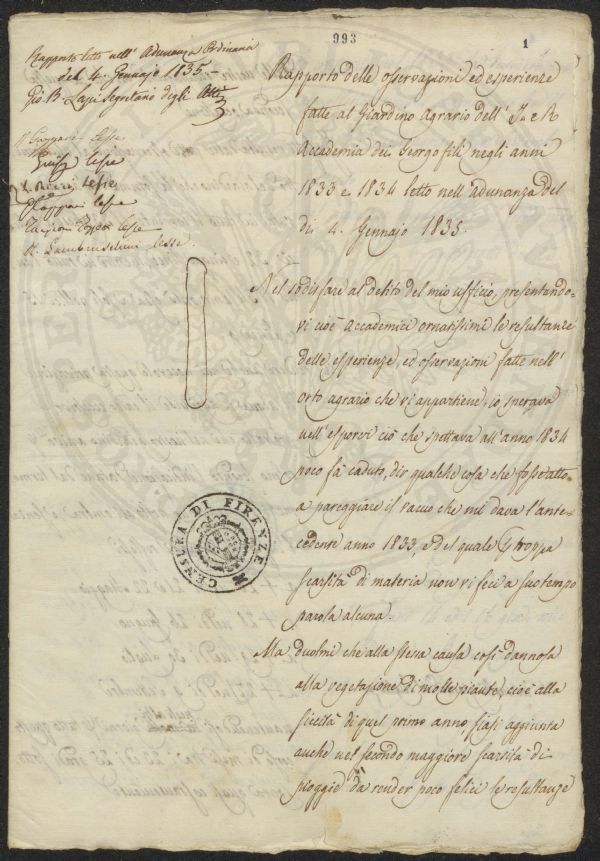 993
1
Rapporto letto nell' Adunanza Ordinaria
del 4. Gennajo 1835 -
Gio. B. Lapi Segretario degli Atti
Gazzeri Lesse
lesse
Lesse
lesse
lesse
R. Lambruschini Lesse.
Rapporto delle osservazioni ed esperienze
fatte al Giardino Agrario dell' I. e R
Accademia dei Georgofili negli anni
1833 e 1834 letto nell' adunanza del
dì 4. Gennajo 1835.
Nel sodisfare al debito del mio ufficio, presentando-
vi cioè Accademici ornatissimi le resultanze
delle esperienze, ed osservazioni fatte nell'
orto agrario che vi appartiene, io sperava
nell' esporvi ciò che spettava all' anno 1834
poco fà caduto, dir qualche cosa che fosse atta
a pareggiare il vacuo che mi dava l' ante-
cedente anno 1833, e del quale troppa
scarsità di materia non vi feci a suo tempo
parola alcuna.
Ma duolmi che alla stessa causa così dannosa
alla vegetazione di molte piante, cioè alla
siccità di quel primo anno siasi aggiunta
anche nel secondo maggiore scarsità di
pioggie da render poco felici le resultanze
CENSURA DI FIRENZE